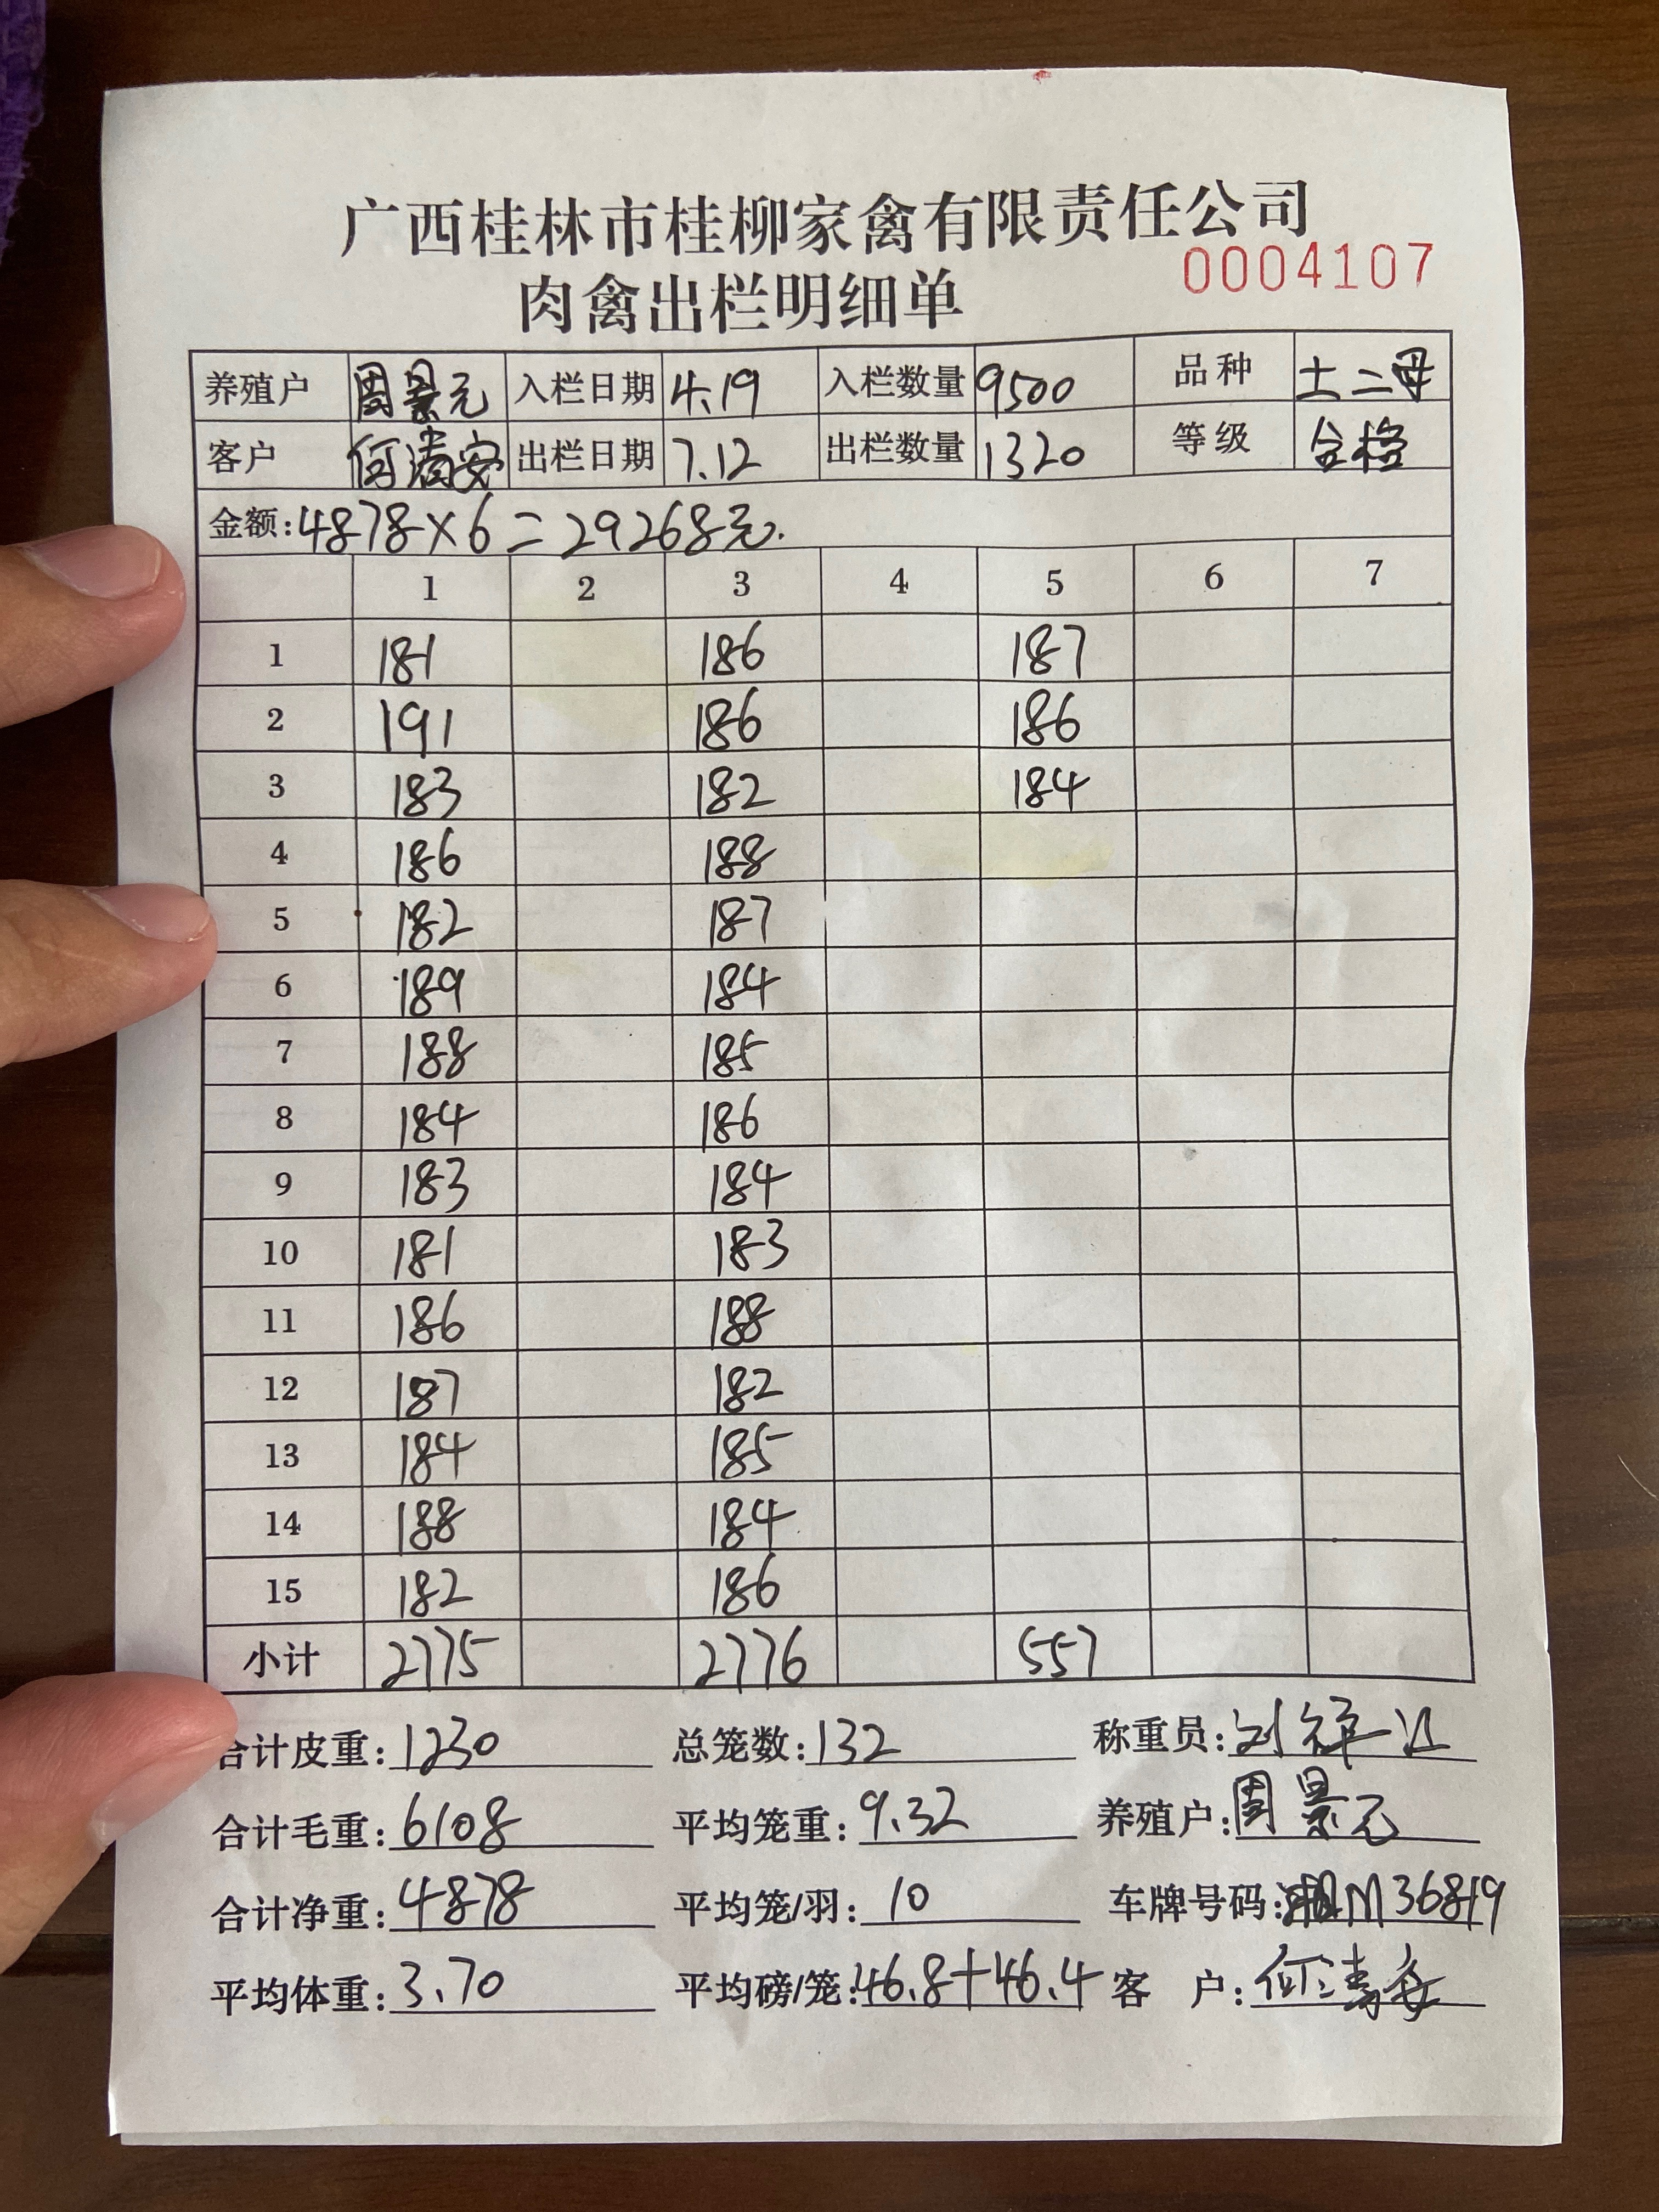 广西桂林市桂柳家禽有限责任公司
0004107
肉禽出栏明细单
养殖户 周景元 入栏日期 4.19 入栏数量 9500 品种 土二母
客户 何清安 出栏日期 7.12 出栏数量 1320 等级 合格
金额:4878×6=29268元.
1 2 3 4 5 6 7
1 181 186 187
2 191 186 186
3 183 182 184
4 186 188
5 182 187
6 189 184
7 188 185
8 184 186
9 183 184
10 181 183
11 186 188
12 187 182
13 184 185
14 188 184
15 182 186
小计 2775 2776 557
合计皮重:1230 总笼数:132 称重员:刘祥
合计毛重:6108 平均笼重:9.32 养殖户:周景元
合计净重:4878 平均笼/羽:10 车牌号码:湘M36819
平均体重:3.70 平均磅/笼:46.8+46.4 客 户:何清安